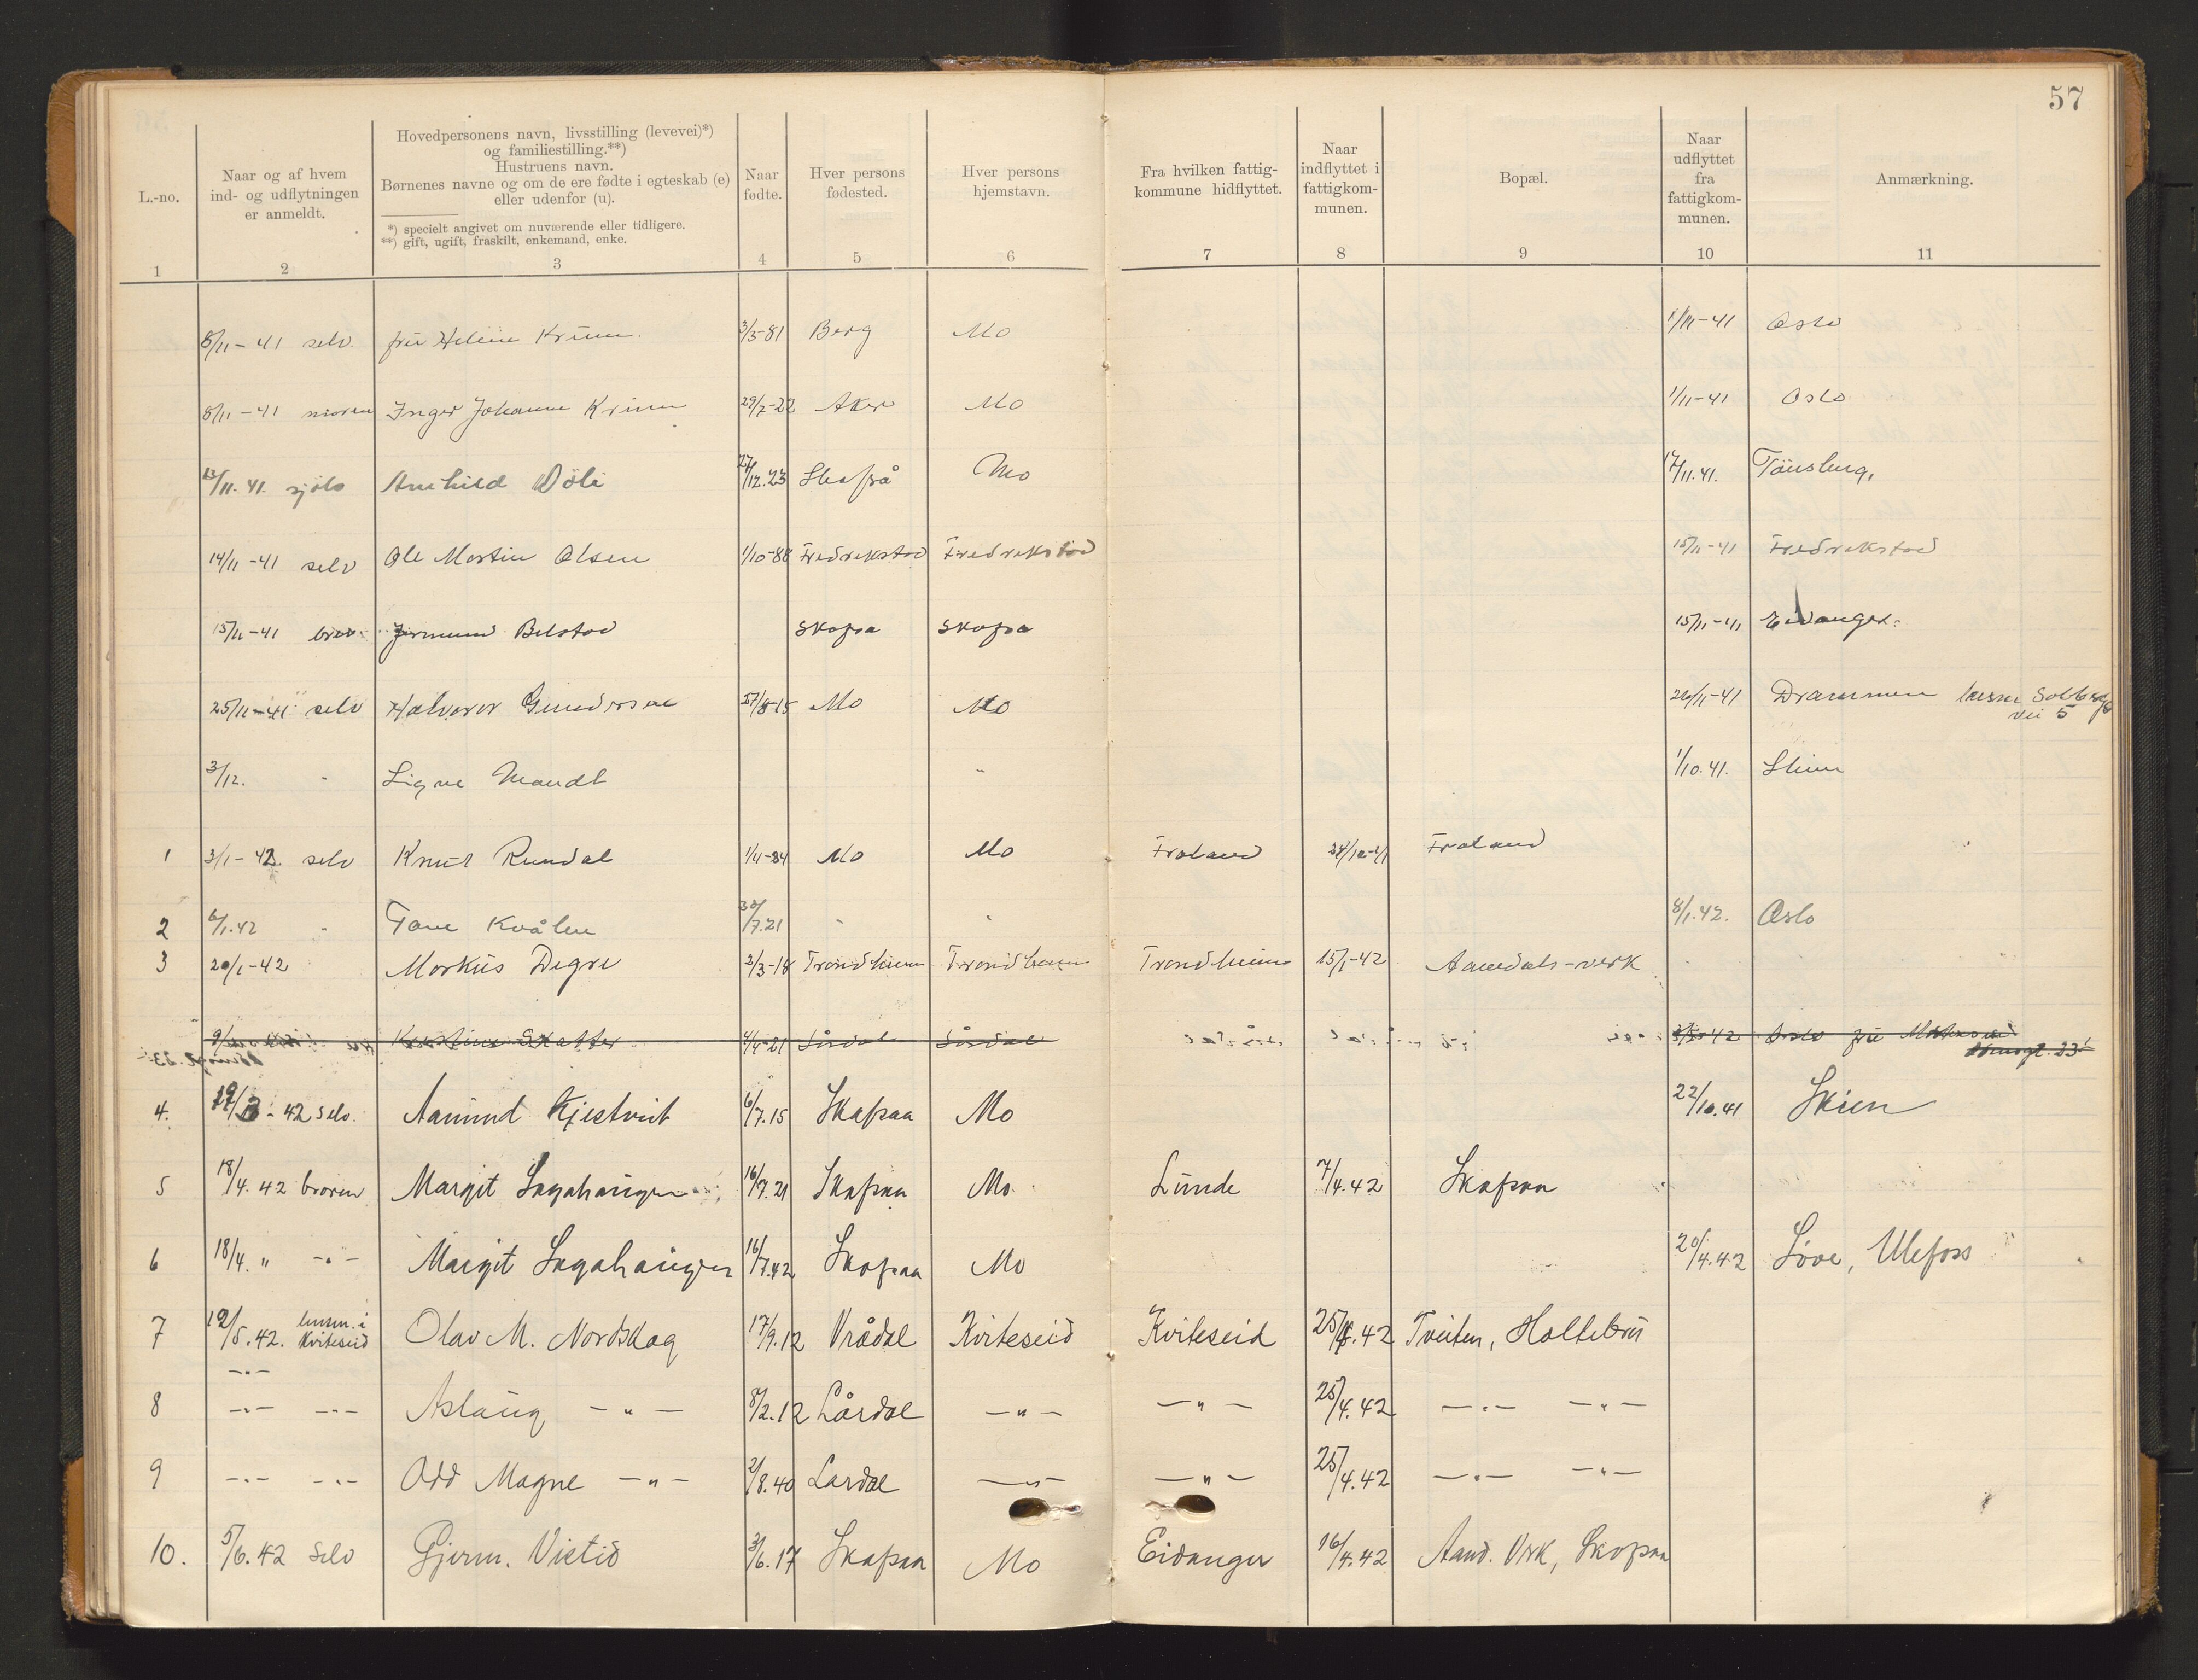 57
L.-no.
Naar og af hvem
ind- og udflytningen
er anmeldt.
Hovedpersonens navn, livsstilling (levevei)*)
og familiestilling.**)
Hustruens navn.
Børnenes navne og om de ere fødte i egteskab (e)
eller udenfor (u).
*) specielt angivet om nuværende eller tidligere.
**) gift, ugift, fraskilt, enkemand, enke.
Naar
fødte.
Hver persons
fødested.
Hver persons
hjemstavn.
Fra hvilken fattig-
kommune hidflyttet.
Naar
indflyttet i
fattigkom-
munen.
Bopæl.
Naar
udflyttet
fra
fattigkom-
munen.
Anmærkning.
1 2 3 4 5 6 7 8 9 10 11
8/11-41 selv. fru Helene Krum. 3/5-81 Berg Mo 1/11-41 Oslo
8/11-41 moren Inger Johanne Krum 29/7-22 Aker Mo 1/11-41 Oslo
/11.41. sjølv 27/12.23 Skafså Mo 17/11.41. Tönsberg.
14/11-41 selv Ole Martin Olsen 1/10-88 Fredrekstad Fredrekstad 15/11-41 Fredrekstad
15/11-41 Belstad Skafsa Skafsa 15/11-41 Eidanger.
25/11-41 selv Halvovor Gundersen 27/8-15 Mo Mo 26/11-41 Drammen
vei 5
3/12. - Signe Mandt - 1/10.41. Skien
1 3/1-42 selv Knut Rundal 1/4-84 Mo Mo Froland Froland
2 6/1.42 - Tone Kvålen 30/7.21 - - 8/1.42. Oslo
3 20/1-42 Markus Degre 2/3-18 Trondheim Trondheim Trondheim 15/1-42 Aamdals-verk
Kristine Skatter 4/4-21 Lårdal Lårdal Oslo fru
4. /3-42 selv. Aamund Kjestveit 6/7.15 Skafsaa Mo 22/10.41 Skien
5 18/4.42 broren Margit Lagahaugen 16/7.21 Skafsaa Mo. Lunde 7/4.42 Skafsaa
6 18/4. " -"- Margit Lagahaugen 16/7.42 Skafsaa Mo 20/4.42 Løve, Ulefoss
7 19/5.42. Kviteseid Olav M. Nordskog 17/9.12 Vrådal Kviteseid Kviteseid 25/4.42 Tveiten, Holtebru
-"-
8 -"- -"- Aslaug -"- 8/2.12 Lårdal -"- -"- 25/4.42 -"- -"-
9 -"- -"- Odd Magne -"- 2/8.40 Lardal -"- -"- 25/4.42 -"- -"-
10. 5/6.42 Selv Gjerm. Vistid 3/6.17 Skafsaa Mo Eidanger 16/4.42 Aamd. Vrk, Skafsaa